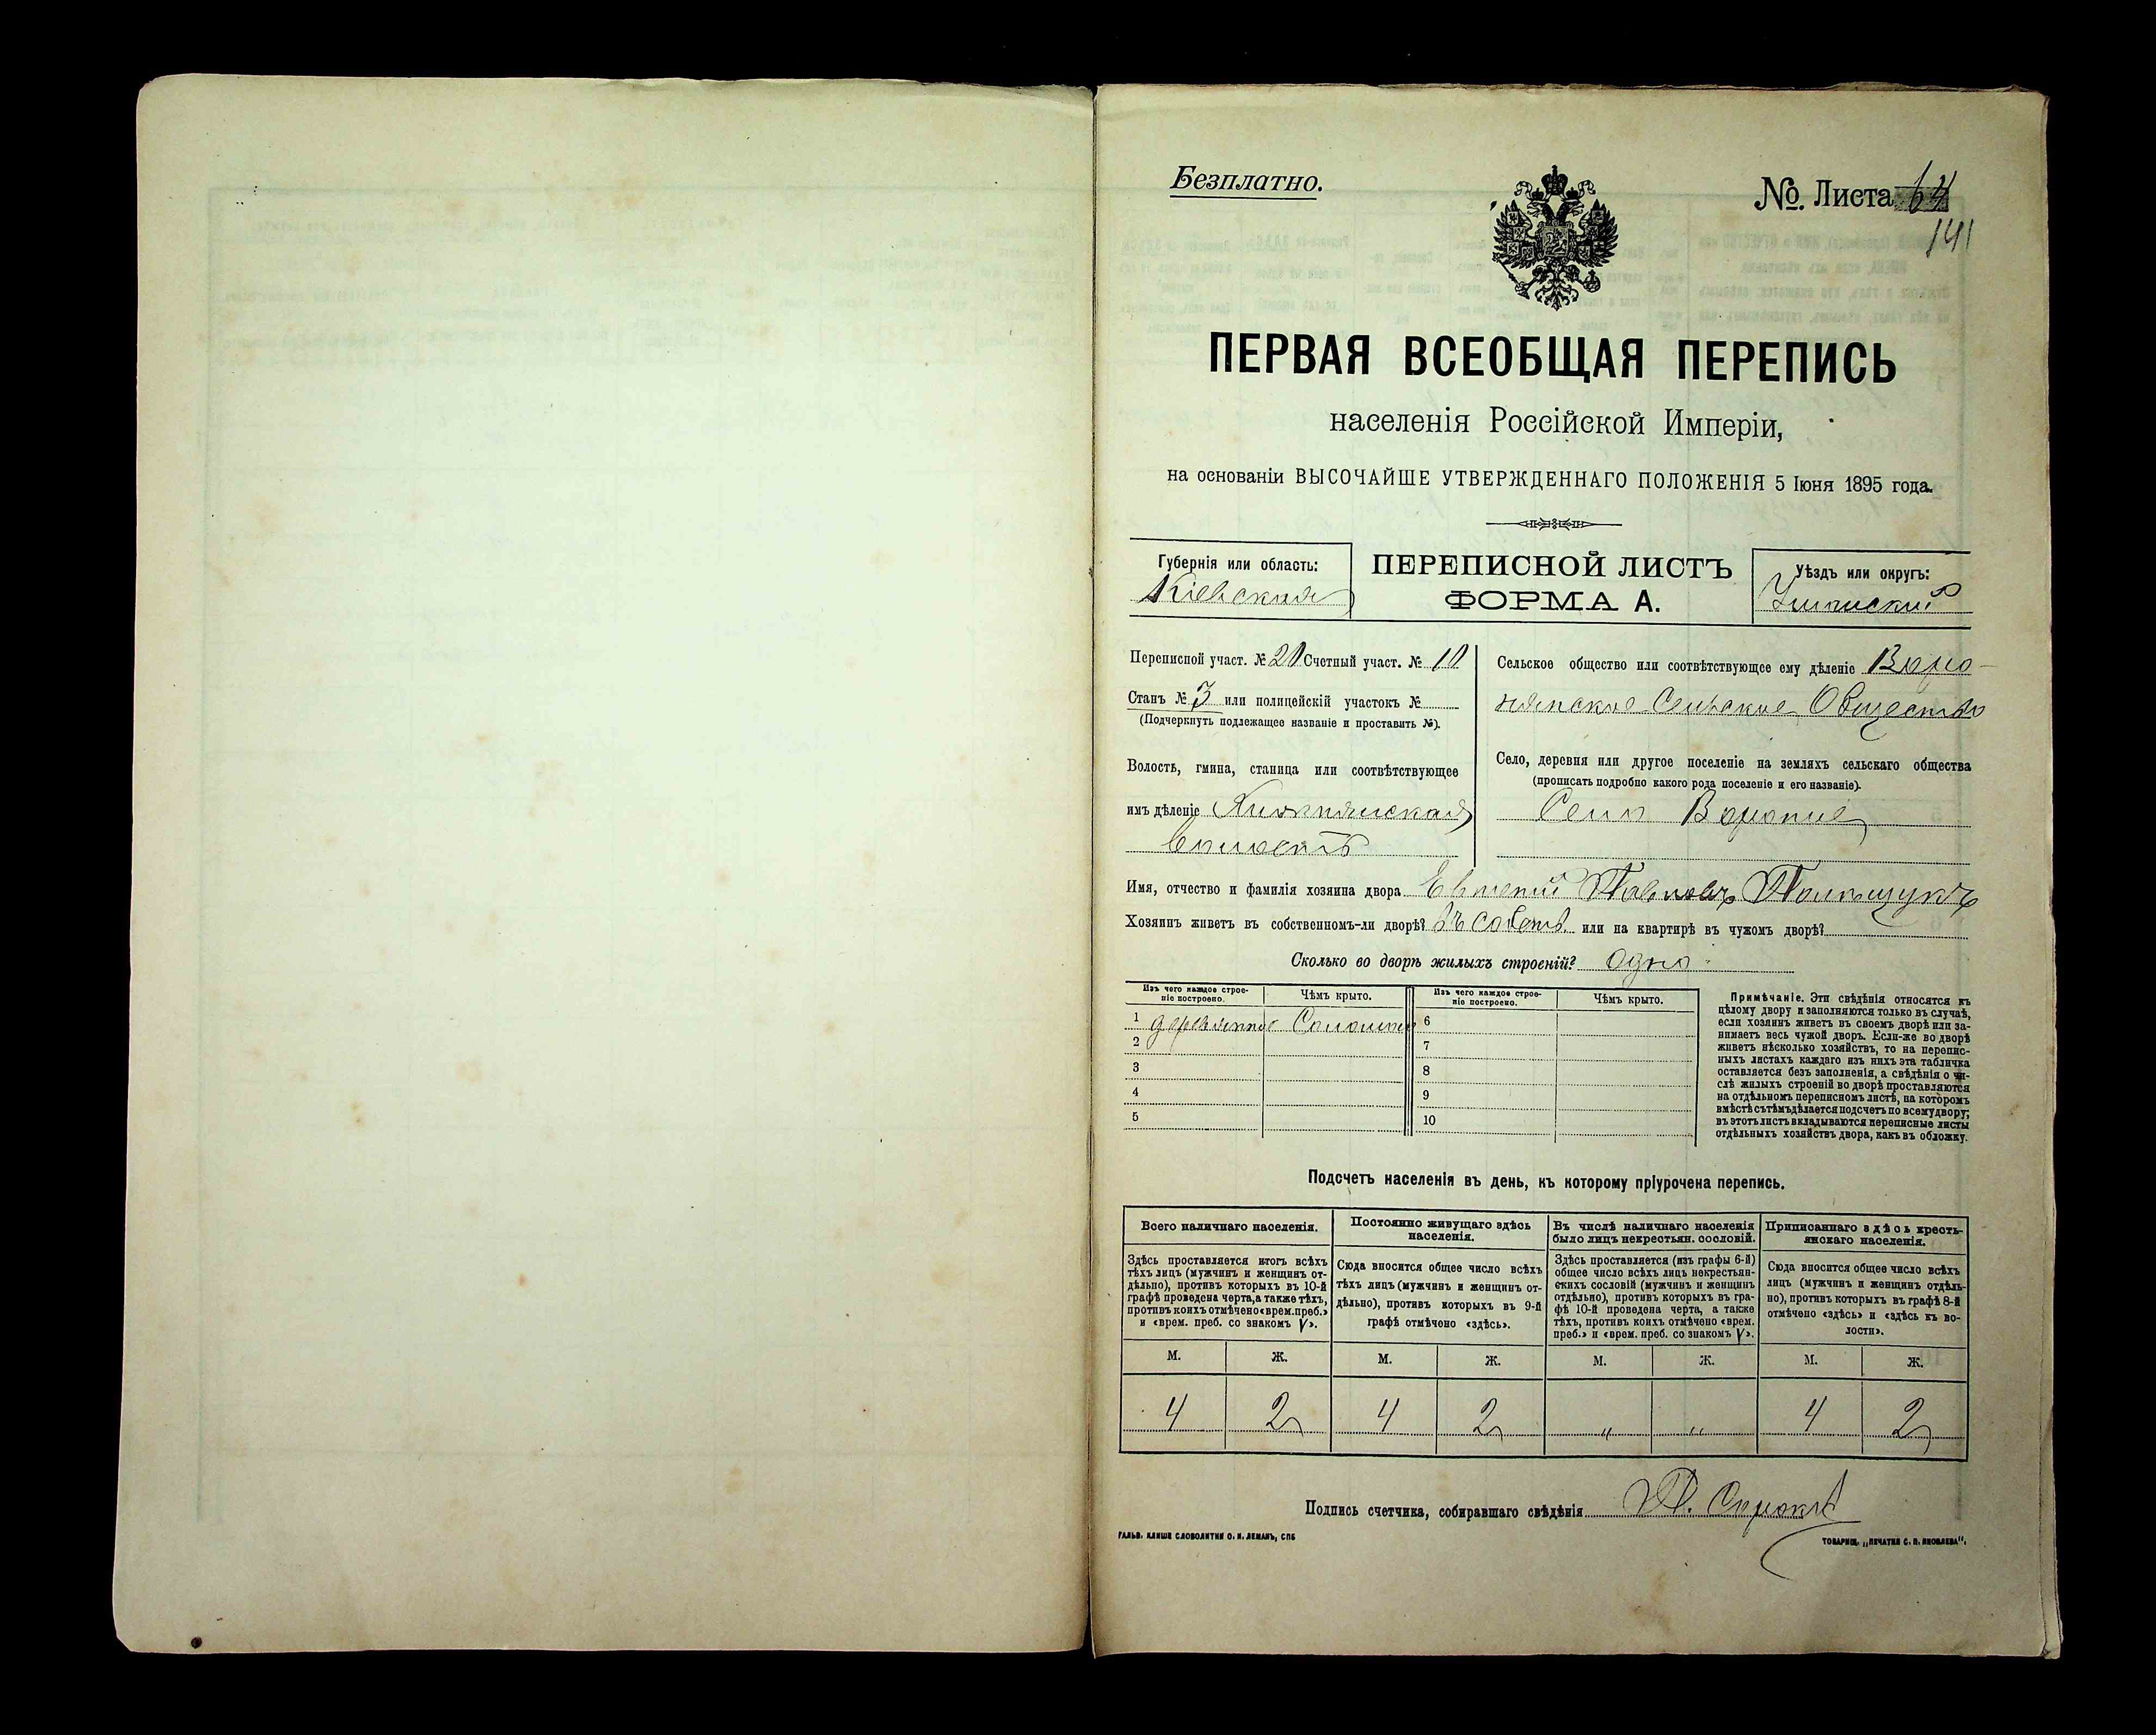 Безплатно.
№. Листа 64
141
ПЕРВАЯ ВСЕОБЩАЯ ПЕРЕПИСЬ
населенія Россійской Имперіи,
на основаніи ВЫСОЧАЙШЕ УТВЕРЖДЕННАГО ПОЛОЖЕНІЯ 5 Іюня 1895 года.
Губернія или область:
Кіевская
ПЕРЕПИСНОЙ ЛИСТЪ
ФОРМА А.
Уѣздъ или округъ:
Уманскій
Переписной участ. № 20 Счетный участ. № 10
Станъ № 3 или полицейскій участокъ №
(Подчеркнуть подлежащее названіе и проставить №).
Волость, гмина, станица или соотвѣтствующее
имъ дѣленіе
волость
Сельское общество или соотвѣтствующее ему дѣленіе
Сельское Общество
Село, деревня или другое поселеніе на земляхъ сельскаго общества
(прописать подробно какого рода поселеніе и его названіе).
Село Вороное
Имя, отчество и фамилія хозяина двора Евтепій Павловъ Полищукъ
Хозяинъ живетъ въ собственномъ-ли дворѣ? въ собств. или на квартирѣ въ чужомъ дворѣ?
Сколько во дворѣ жилыхъ строеній? одно
Изъ чего каждое строе-
ніе построено.
Чѣмъ крыто.
Изъ чего каждое строе-
ніе построено.
Чѣмъ крыто.
1 деревянное Соломою 6
2 7
3 8
4 9
5 10
Примѣчаніе. Эти свѣдѣнія относятся къ
цѣлому двору и заполняются только въ случаѣ,
если хозяинъ живетъ въ своемъ дворѣ или за-
нимаетъ весь чужой дворъ. Если-же во дворѣ
живетъ нѣсколько хозяйствъ, то на перепис-
ныхъ листахъ каждаго изъ нихъ эта табличка
оставляется безъ заполненія, а свѣдѣнія о чи-
слѣ жилыхъ строеній во дворѣ проставляются
на отдѣльномъ переписномъ листѣ, на которомъ
вмѣстѣ съ тѣмъ дѣлается подсчетъ по всему двору;
въ этотъ листъ вкладываются переписные листы
отдѣльныхъ хозяйствъ двора, какъ въ обложку.
Подсчетъ населенія въ день, къ которому пріурочена перепись.
Всего наличнаго населенія.
Здѣсь проставляется итогъ всѣхъ
тѣхъ лицъ (мужчинъ и женщинъ от-
дѣльно), противъ которыхъ въ 10-й
графѣ проведена черта, а также тѣхъ,
противъ коихъ отмѣчено «врем. преб.»
и «врем. преб. со знакомъ V».
Постоянно живущаго здѣсь
населенія.
Сюда вносится общее число всѣхъ
тѣхъ лицъ (мужчинъ и женщинъ от-
дѣльно), противъ которыхъ въ 9-й
графѣ отмѣчено «здѣсь».
Въ числѣ наличнаго населенія
было лицъ некрестьян. сословій.
Здѣсь проставляется (изъ графы 6-й)
общее число всѣхъ лицъ некрестьян-
скихъ сословій (мужчинъ и женщинъ
отдѣльно), противъ которыхъ въ гра-
фѣ 10-й проведена черта, а также
тѣхъ, противъ коихъ отмѣчено «врем.
преб.» и «врем. преб. со знакомъ V».
Приписаннаго здѣсь кресть-
янскаго населенія.
Сюда вносится общее число всѣхъ
лицъ (мужчинъ и женщинъ отдѣль-
но), противъ которыхъ въ графѣ 8-й
отмѣчено «здѣсь» и «здѣсь къ во-
лости».
М. Ж. М. Ж. М. Ж. М. Ж.
4 2 4 2 " " 4 2
Подпись счетчика, собиравшаго свѣдѣнія
ГАЛЬВ. КЛИШЕ СЛОВОЛИТНИ О. И. ЛЕМАНЪ, СПБ
ТОВАРИЩ. „ПЕЧАТНЯ С. П. ЯКОВЛЕВА".